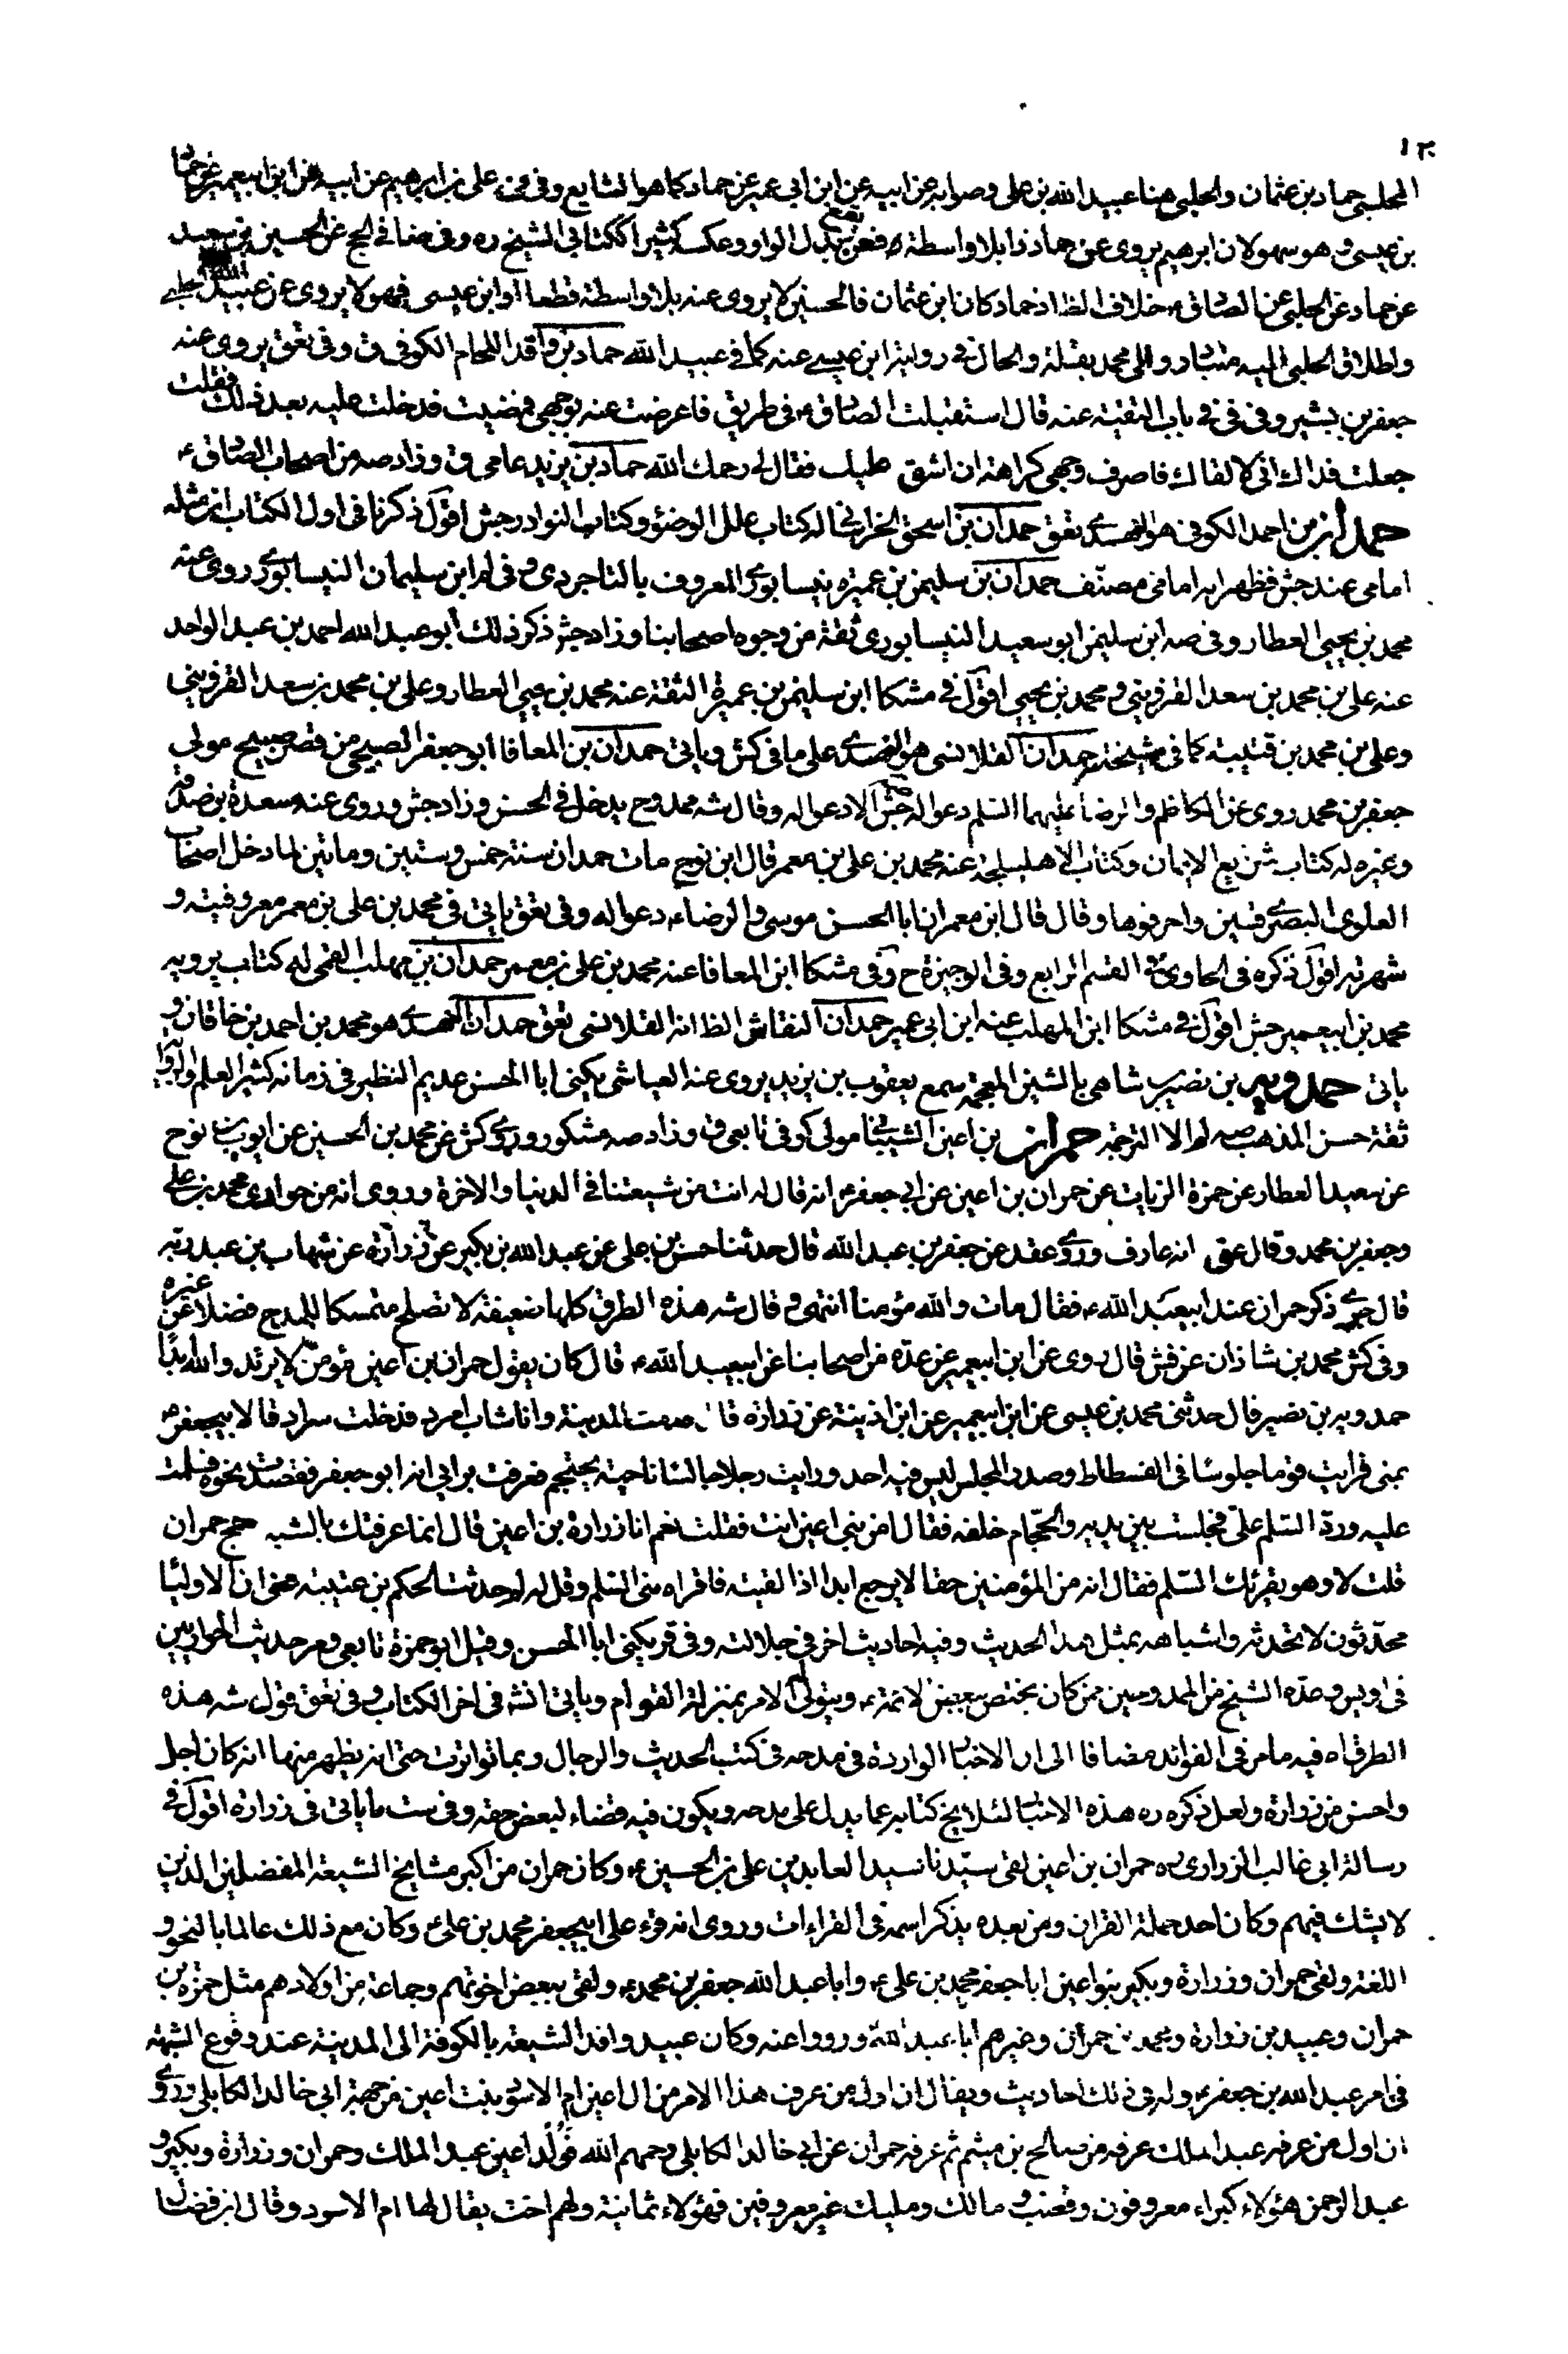 ١٢٠
الحلبي حماد بن عثمان والحلبي هنا عبيد الله بن على وصوابه عن ابيه عن ابن ابي عمير عن حماد كما هو الشايع وفى في على بن ابرهيم عن ابيه عن ابن ابيعمير عن حماد
بن عيسى وهو سهو لان ابرهيم يروى عن حماد ذا بلا واسطة فعن بدل الواو وعكسه كثير ككتابي الشيخ ره وفى منا في الحج عن الحسين بن سعيد
عن حماد عن الحلبي عن الصادق ع خلاف الظ اذ حماد كان ابن عثمان فالحسين لا يروى عنه بلا واسطة قطعا او ابن عيسى فهو لا يروى عن عبيد الله الحلبي
واطلاق الحلبي اليه متبادر والى محمد بقلة والحال في رواية ابن عيسى عنه كما في عبيد الله حماد بن واقد اللحام الكوفى ق وفى تعق يروى عنه
جعفر بن بشير وفى في في باب التقية عنه قال استقبلت الصادق ع فى طريق فاعرضت عنه بوجهى ومضيت فدخلت عليه بعد ذلك فقلت
جعلت فداك انى لالقاك فاصرف وجهى كراهة ان اشق عليك فقال لى رحمك الله حماد بن يزيد عامى ق وزاد صه من اصحاب الصادق ع
حمدان بن احمد الكوفى هو النهدى تعق حمدان بن اسحق الخراسانى له كتاب علل الوضؤ وكتاب النوادر جش اقول ذكرنا فى اول الكتاب ان مثله
امامى عند جش فظهر انه امامى مصنف حمدان بن سليمن بن عميره نيسابورى المعروف بالتاجر دى وفى لم ابن سليمان النيسابورى روى عنه
محمد بن يحيى العطار وفى صه ابن سليمن ابو سعيد النيسابورى ثقة من وجوه اصحابنا وزاد جش ذكر ذلك أبو عبد الله احمد بن عبد الواحد
عنه على بن محمد بن سعد القزوينى ومحمد بن يحيى اقول في مشكا ابن سليمن بن عميرة الثقة عنه محمد بن يحيى العطار وعلى بن محمد بن سعد القزوينى
وعلى بن محمد بن قتيبه كما فى مشيخة حمدان القلانسى هو النهدى على ما فى كش وياتى حمدان بن المعافا ابو جعفر الصبيحى من قصر صبيح مولى
جعفر بن محمد روى عن الكاظم والرضا عليهما السلم دعوا له جش الا دعوا له وقال شه ممدوح يدخل في الحسن وزاد جش وروى عنه مسعدة بن صدقة
وغيره له كتاب شرايع الايمان وكتاب الاهليلجة عنه محمد بن على بن معمر قال ابن نوح مات حمدان سنة خمس وستين ومائتين لما دخل اصحاب
العلوى البصرى قسين واحرقوها وقال قال ابن معمر ان ابا الحسن موسى والرضا ع دعوا له وفى تعق ياتى فى محمد بن على بن معمر معروفيته و
شهرته اقول ذكره فى الحاوى في القسم الرابع وفى الوجيزة ح وفى مشكا ابن المعافا عنه محمد بن على بن معمر حمدان بن مهلب القمى له كتاب يرويه
محمد بن ابيعمير جش اقول في مشكا ابن المهلب عنه ابن ابى عمير حمدان النقاش الظ انه القلانسى تعق حمدان النهدى هو محمد بن احمد بن خاقان و
ياتى حمدويه بن نصير بن شاهى بالشين المعجمة سمع يعقوب بن يزيد يروى عنه العياشى يكنى ابا الحسن عديم النظير فى زمانه كثير العلم والرواية
ثقة حسن المذهب صه لم الا الترجمة حمران بن اعين الشيبانى مولى كوفى تابعى ق وزاد صه مشكور وروى كش عن محمد بن الحسين عن ايوب بن نوح
عن سعيد العطار عن حمزة الزيات عن حمران بن اعين عن ابى جعفر ع انه قال له انت من شيعتنا فى الدنيا والاخرة وروى انه من حوارى محمد بن على
وجعفر بن محمد وقال عق انه عارف وروى عقد عن جعفر بن عبد الله قال حدثنا حسن بن على عن عبد الله بن بكير عن زرارة عن شهاب بن عبد ربه
قال جرى ذكر حمران عند ابيعبد الله ع فقال مات والله مؤمنا انتهى وقال شه هذه الطرق كلها ضعيفة لا تصلح متمسكا للمدح فضلا عن غيره
وفى كش محمد بن شاذان عن فش قال روى عن ابن ابيعمير عن عدة من اصحابنا عن ابيعبد الله ع قال كان يقول حمران بن اعين مؤمن لا يرتد والله ابدا
حمدويه بن نصير قال حدثنى محمد بن عيسى عن ابن ابيعمير عن ابن اذينة عن زرارة قال قدمت المدينة وانا شاب امرد فدخلت سرادقا لابيجعفر ع
بمنى فرايت قوما جلوسا فى الفسطاط وصدر المجلس ليس فيه احد ورايت رجلا جالسا ناحية يحتجم فعرفت برايى انه ابو جعفر فقصدت نحوه فسلمت
عليه ورد السلم على فجلست بين يديه والحجام خلفه فقال امن بنى اعين انت فقلت نعم انا زرارة بن اعين قال انما عرفتك بالشبه حج حمران
قلت لا وهو يقرئك السلم فقال انه من المؤمنين حقا لا يرجع ابدا اذا لقيته فاقراه منى السلم وقل له لم حدثت الحكم بن عتيبة عنى ان الاوليا
محدثون لا تحدثه واشباهه بمثل هذا الحديث وفيه احاديث اخر فى جلالته وفى قر يكنى ابا الحسن وقيل ابو حمزة تابعى ومر حديث الحواريين
فى اويس وعده الشيخ من الممدوحين من كان يختص ببعض الائمة ع ويتولى له الامر بمنزلة القوام وياتى انش فى اخر الكتاب وفى تعق قول شه هذه
الطرق اه فيه ما مر فى الفوائد مضافا الى ان الاخبار الواردة فى مدحه فى كتب الحديث والرجال وبما تواترت حتى انه يظهر منها انه كان اجل
واحسن من زرارة ولعل ذكره ره هذه الاخبار لئلا يخ كتابه عما يدل على مدحه ويكون فيه قضاء لبعض حقه وفى ست ما ياتى فى زرارة اقول فى
رسالة ابى غالب الزرارى ره حمران بن اعين لقى سيدنا سيد العابدين على بن الحسين ع وكان حمران من اكبر مشايخ الشيعة المفضلين الذين
لا يشك فيهم وكان احد حملة القران ومن بعده يذكر اسمه فى القراءات وروى انه قرء على ابيجعفر محمد بن على ع وكان مع ذلك عالما بالنحو و
اللغة ولقى حمران وزرارة وبكير بنو اعين ابا جعفر محمد بن على ع وابا عبد الله جعفر بن محمد ع ولقى بعض اخوتهم وجماعة من اولادهم مثل حمزة بن
حمران وعبيد بن زرارة ومحمد بن حمران وغيرهم ابا عبد الله ورووا عنه وكان عبيد وافد الشيعة بالكوفة الى المدينة عند وقوع الشبهة
فى امر عبد الله بن جعفر ع وله فى ذلك احاديث ويقال ان اول من عرف هذا الامر من ال اعين ام الاسود بنت اعين من جهة ابى خالد الكابلى وروى
ان اول من عرفه عبد الملك عرفه من صالح بن ميثم ثم عرفه حمران عن ابى خالد الكابلى رحمهم الله فولد اعين عبد الملك وحمران وزرارة وبكير و
عبد الرحمن هؤلاء كبراء معروفون وقعنب و مالك ومليك غير معروفين فهؤلاء ثمانية ولهم اخت يقال لها ام الاسود وقال ابن فضال